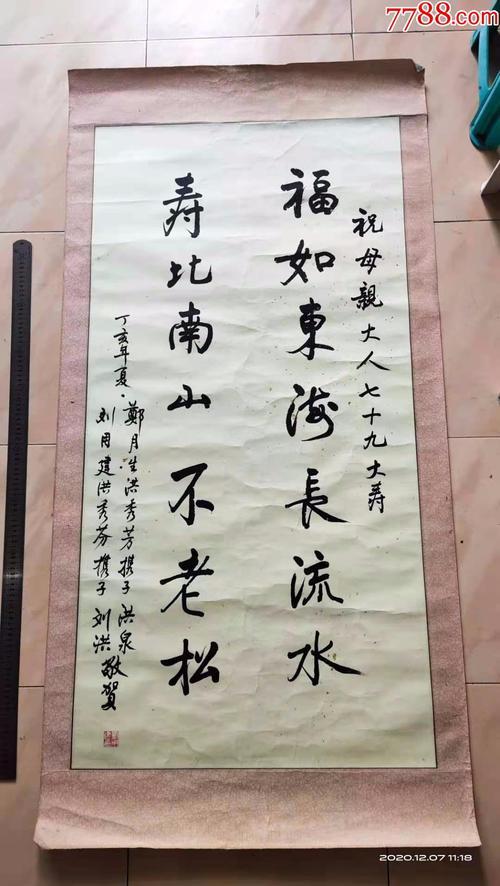 7788.com
祝母親大人七十九大寿
福如東海長流水
寿比南山不老松
丁亥年夏·鄭月生洪秀芳携子洪泉
刘用建洪秀芬携子刘洪敬贺
2020.12.07 11:18